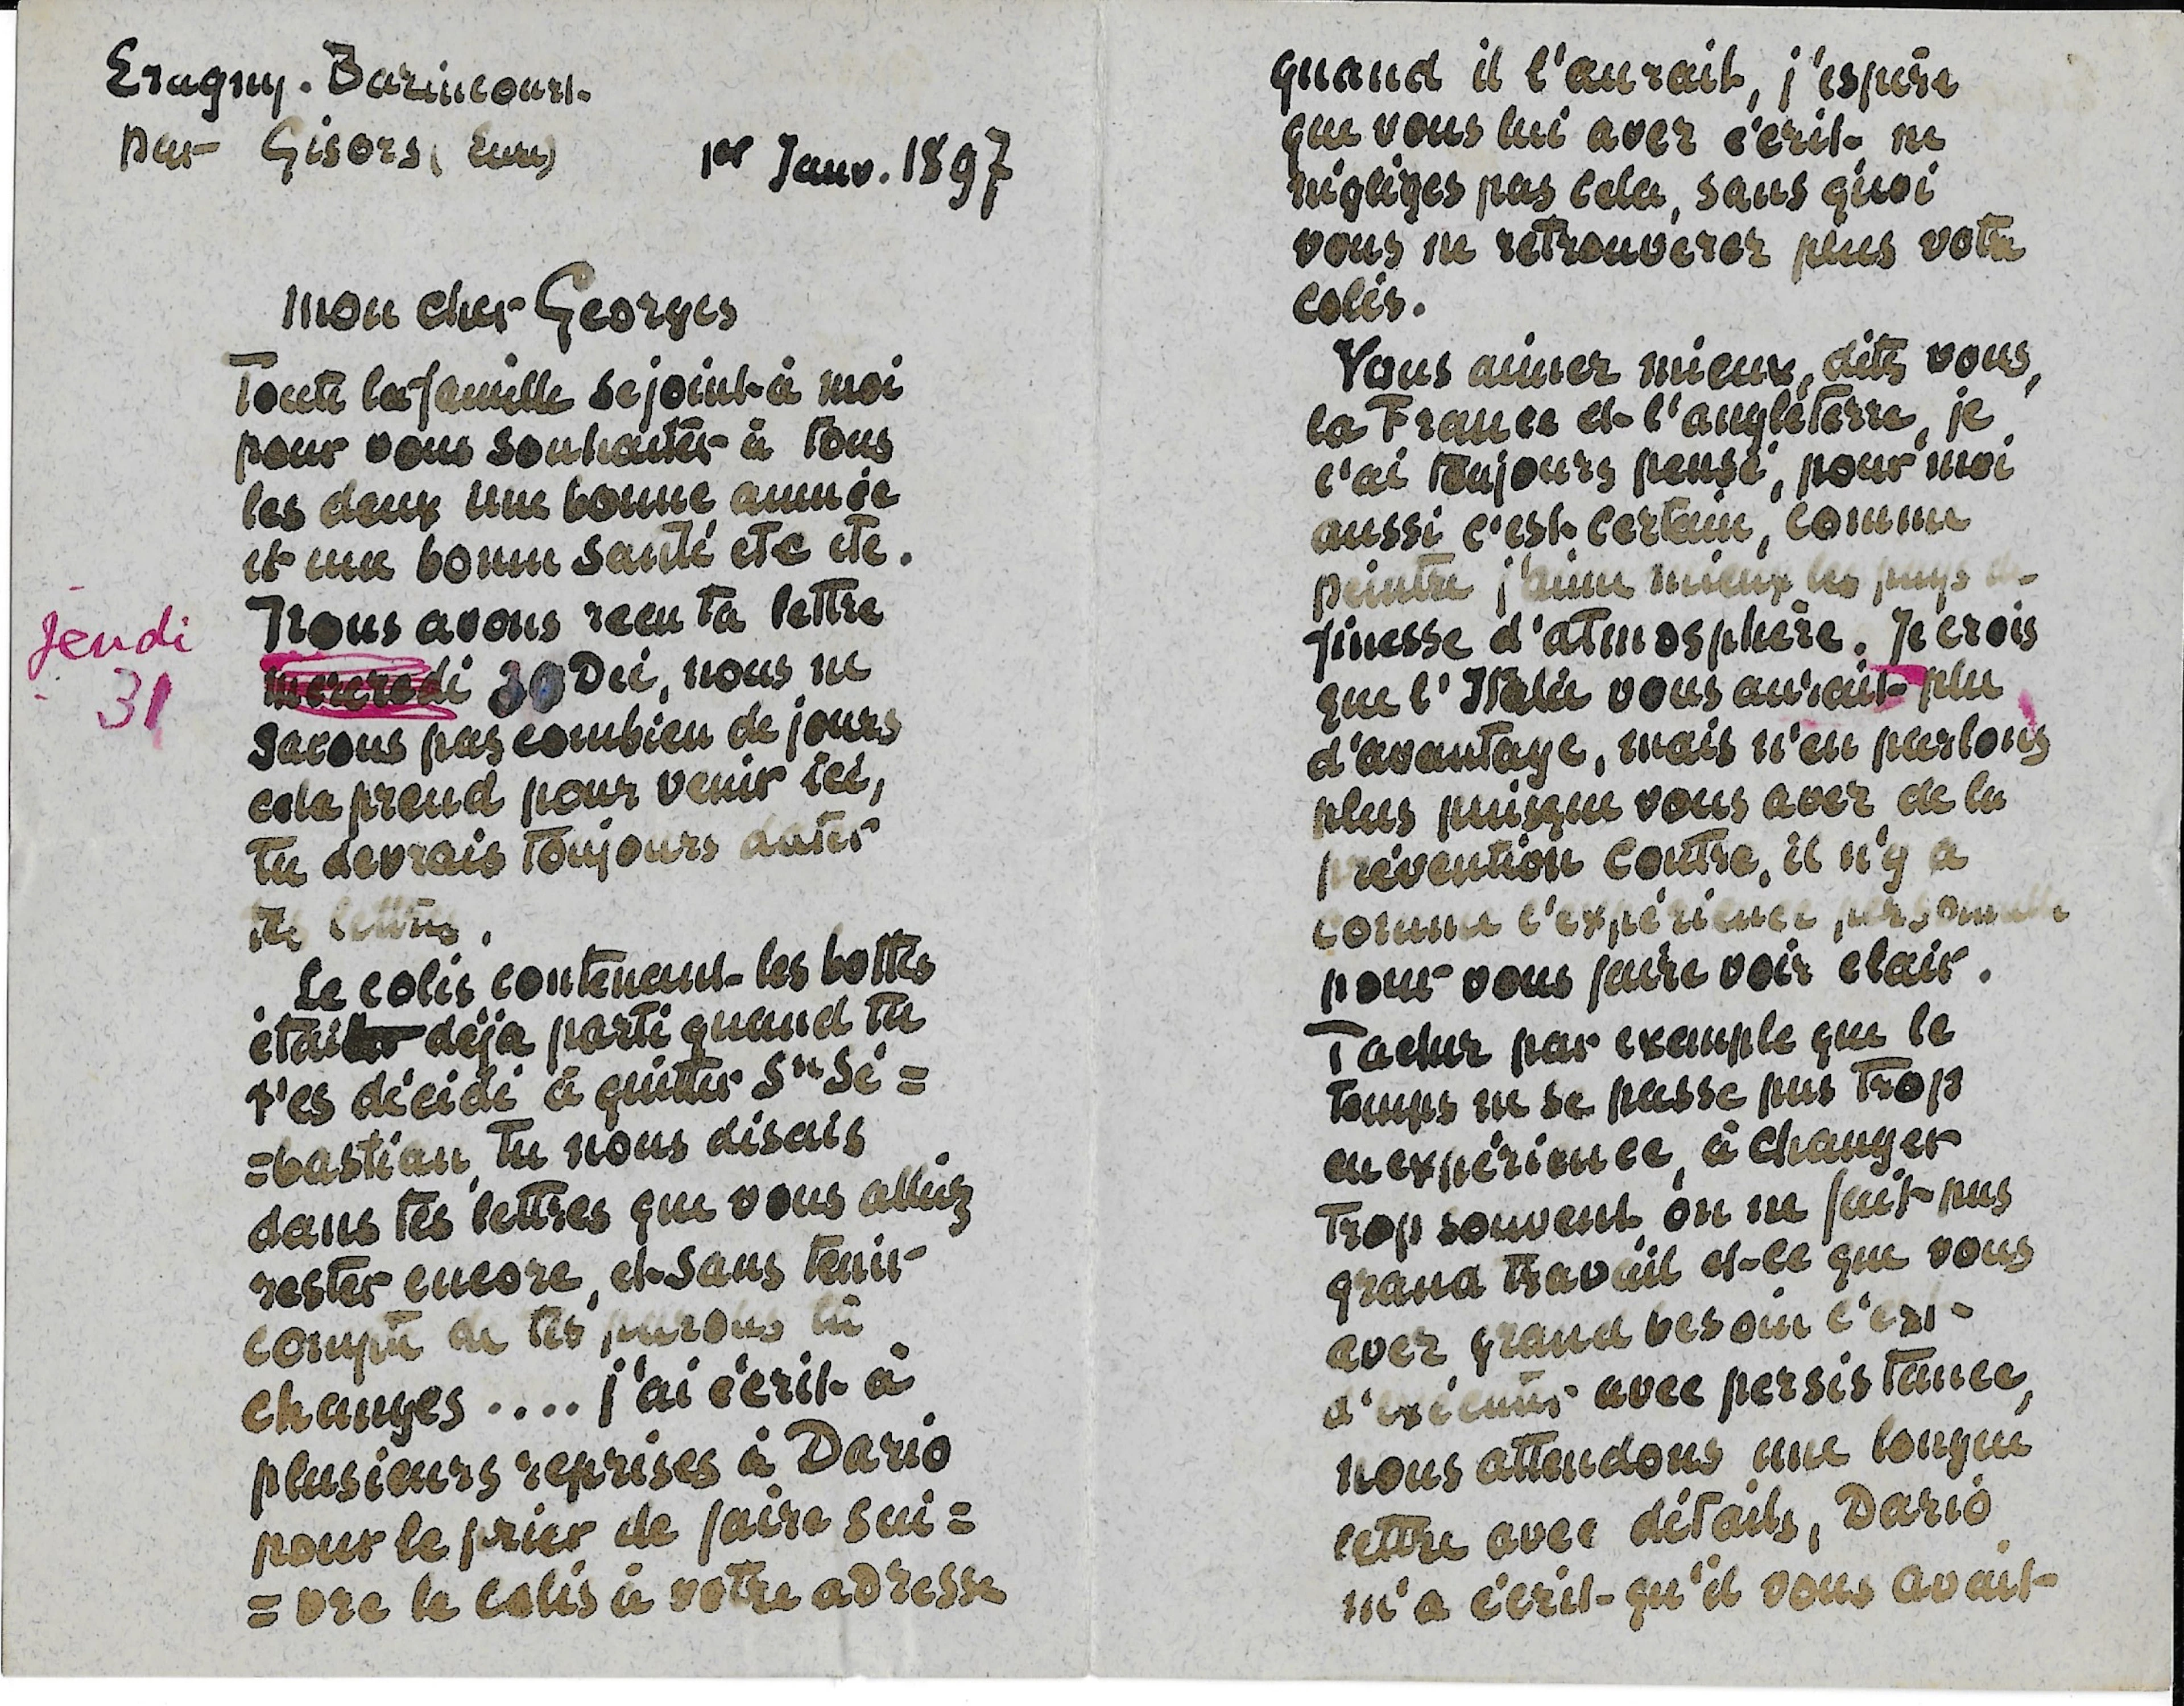 Eragny. Bazincourt
par Gisors (Eure)
1er Janv. 1897
mon cher Georges
Toute la famille se joint à moi
pour vous souhaiter à tous
les deux une bonne année
et une bonne santé etc etc.
Nous avons reçu ta lettre
jendi
31
mercredi 30 Déc, nous ne
savons pas combien de jours
cela prend pour venir ici,
tu devrais toujours dater
tes lettres.
Le colis contenant les bottes
était déja parti quand tu
t'es décidé à quitter Sn Sé =
=bastian, tu nous disais
dans tes lettres que vous alliez
rester encore, et sans tenir
compte de tes paroles tu
changes .... j'ai écrit à
plusieurs reprises à Dario
pour le prier de faire sui =
= vre le colis à votre adresse
quand il l'aurait, j'espère
que vous lui avez écrit ne
négliges pas cela, sans quoi
vous ne retrouverez plus votre
colis.
Vous aimez mieux, dites vous,
la France et l'angleterre, je
l'ai toujours pensé, pour moi
aussi c'est certain, comme
peintre j'aime mieux les pays de
finesse d'atmosphère. Je crois
que l'Italie vous aurait plu
d'avantage, mais n'en parlons
plus puisque vous avez de la
prévention contre, il n'y a
comme l'expérience personnelle
pour vous faire voir clair.
Tachez par exemple que le
temps ne se passe pas trop
en expérience, à changer
trop souvent on ne fait pas
grand travail et ce que vous
avez grand besoin c'est
d'exécuter avec persistance,
nous attendons une longue
lettre avec détails, Dario
m'a écrit qu'il vous avait